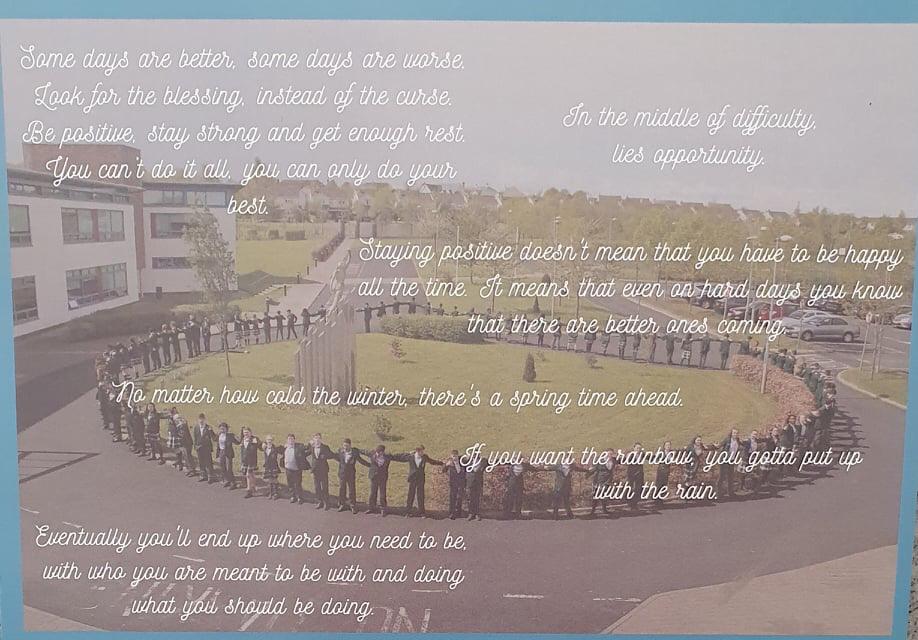 Some days are better, some days are worse.
Look for the blessing, instead of the curse.
Be positive, stay strong and get enough rest.
You can't do it all, you can only do your
best.
In the middle of difficulty,
lies opportunity.
Staying positive doesn't mean that you have to be happy
all the time. It means that even on hard days you know
that there are better ones coming.
No matter how cold the winter, there's a spring time ahead.
If you want the rainbow, you gotta put up
with the rain.
Eventually you'll end up where you need to be,
with who you are meant to be with and doing
what you should be doing.